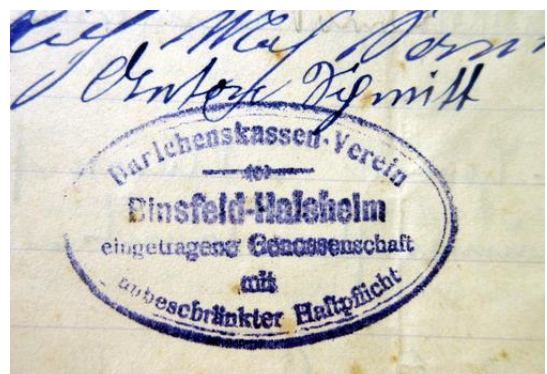 Anton Schmitt
Darlehenskassen-Verein
Binsfeld-Halsheim
eingetragene Genossenschaft
mit
unbeschränkter Haftpflicht